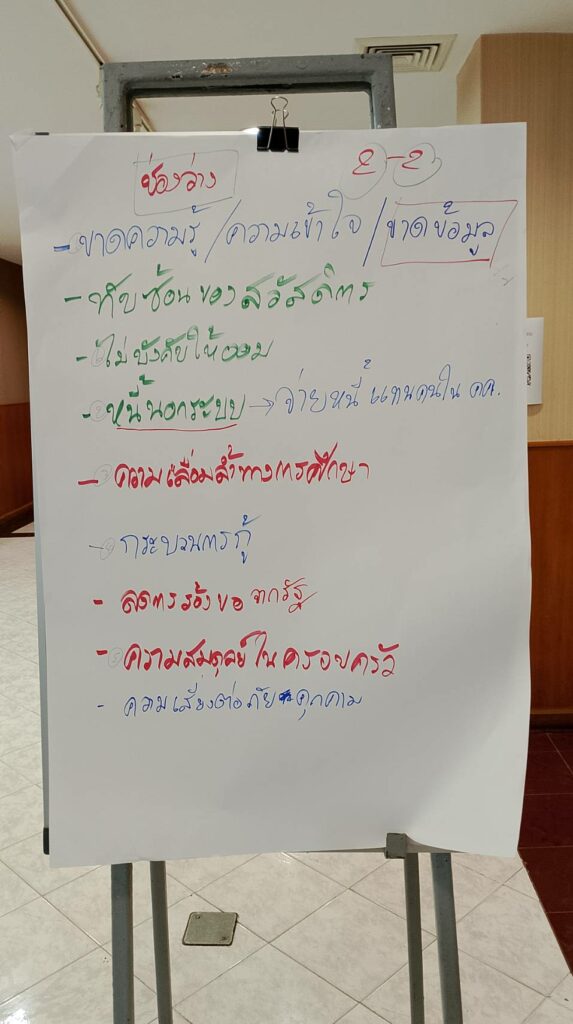 ช่องว่าง 2-2
- ขาดความรู้ / ความเข้าใจ / ขาดข้อมูล
- ทับซ้อนของสวัสดิการ
- ไม่บังคับให้ออม
- หนี้นอกระบบ → จ่ายหนี้แทนคนใน คค.
- ความเลื่อมล้ำทางการศึกษา
- กระบวนการกู้
- ลดการร้องขอจากรัฐ
- ความสมดุลย์ในครอบครัว
- ความเสี่ยงต่อภัยคุกคาม